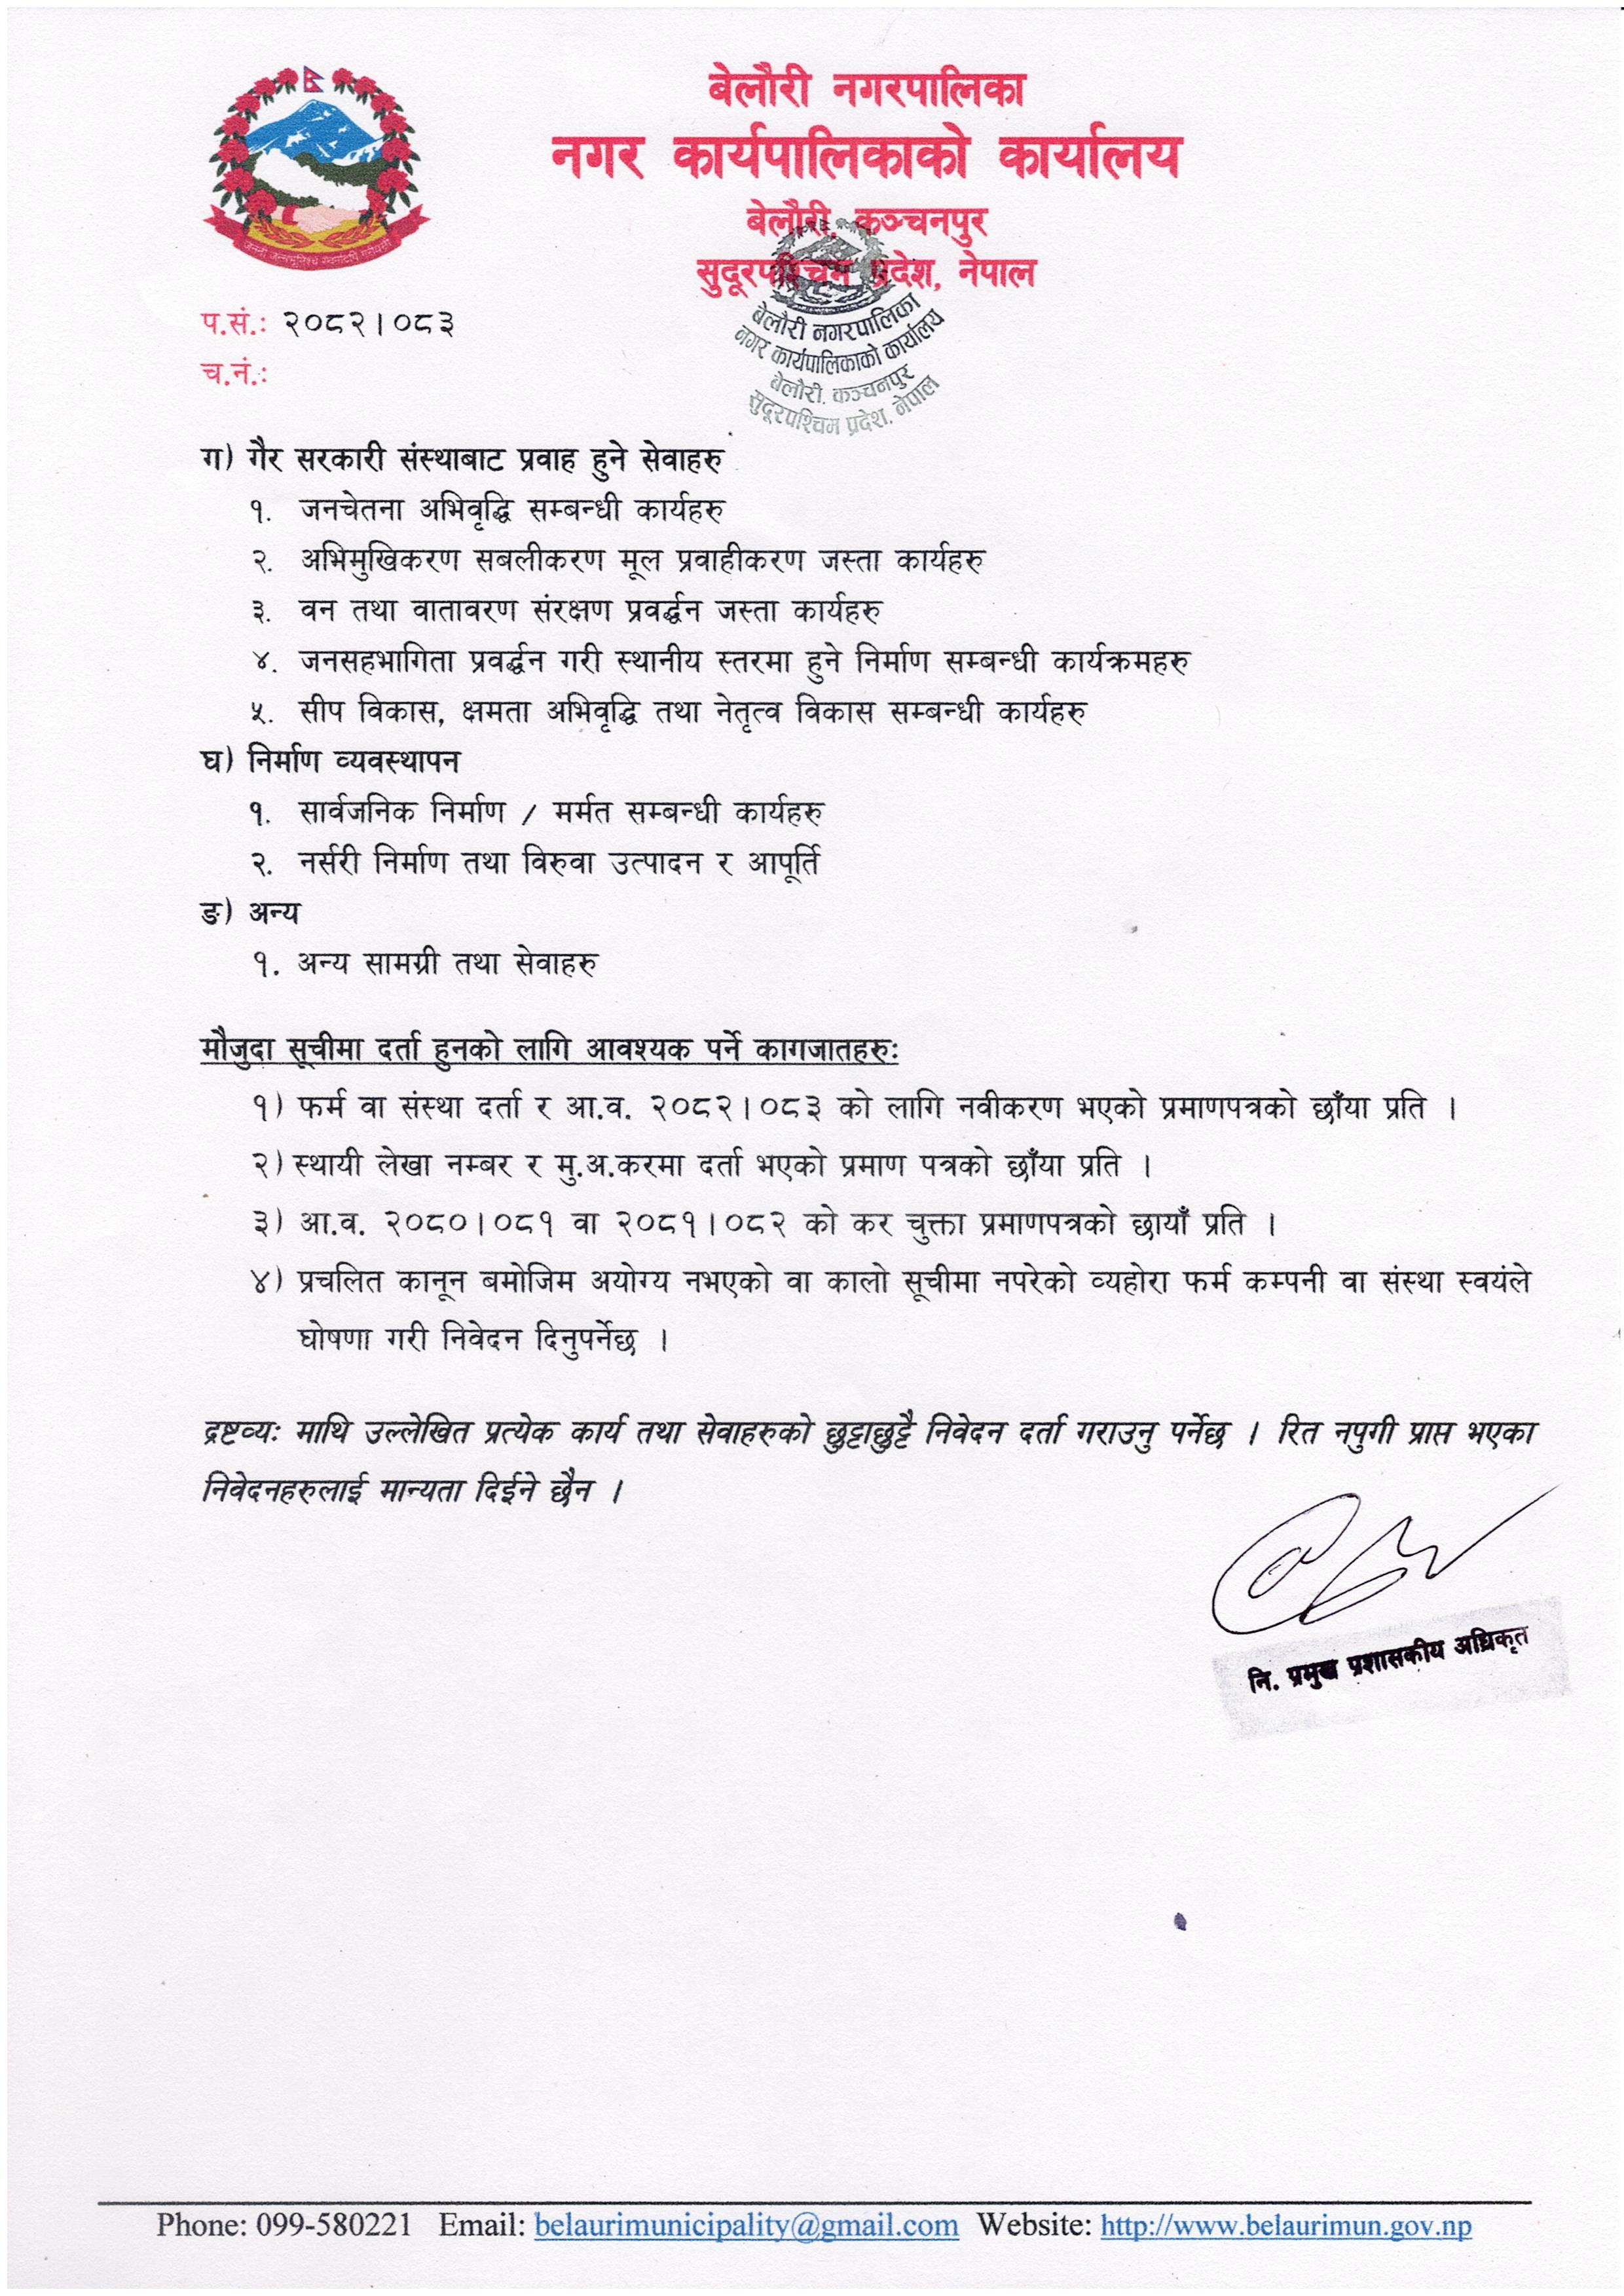 बेलौरी नगरपालिका
नगर कार्यपालिकाको कार्यालय
बेलौरी, कञ्चनपुर
सुदूरपश्चिम प्रदेश, नेपाल
बेलौरी नगरपालिका
नगर कार्यपालिकाको कार्यालय
बेलौरी, कञ्चनपुर
सुदूरपश्चिम प्रदेश, नेपाल
प.सं.: २०८२।०८३
च.नं.:
ग) गैर सरकारी संस्थाबाट प्रवाह हुने सेवाहरु
१. जनचेतना अभिवृद्धि सम्बन्धी कार्यहरु
२. अभिमुखिकरण सबलीकरण मूल प्रवाहीकरण जस्ता कार्यहरु
३. वन तथा वातावरण संरक्षण प्रवर्द्धन जस्ता कार्यहरु
४. जनसहभागिता प्रवर्द्धन गरी स्थानीय स्तरमा हुने निर्माण सम्बन्धी कार्यक्रमहरु
५. सीप विकास, क्षमता अभिवृद्धि तथा नेतृत्व विकास सम्बन्धी कार्यहरु
घ) निर्माण व्यवस्थापन
१. सार्वजनिक निर्माण / मर्मत सम्बन्धी कार्यहरु
२. नर्सरी निर्माण तथा विरुवा उत्पादन र आपूर्ति
ङ) अन्य
१. अन्य सामग्री तथा सेवाहरु
मौजुदा सूचीमा दर्ता हुनको लागि आवश्यक पर्ने कागजातहरुः
१) फर्म वा संस्था दर्ता र आ.व. २०८२।०८३ को लागि नवीकरण भएको प्रमाणपत्रको छाँया प्रति ।
२) स्थायी लेखा नम्बर र मु.अ.करमा दर्ता भएको प्रमाण पत्रको छाँया प्रति ।
३) आ.व. २०८०।०८१ वा २०८१।०८२ को कर चुक्ता प्रमाणपत्रको छायाँ प्रति ।
४) प्रचलित कानून बमोजिम अयोग्य नभएको वा कालो सूचीमा नपरेको व्यहोरा फर्म कम्पनी वा संस्था स्वयंले
घोषणा गरी निवेदन दिनुपर्नेछ ।
द्रष्टव्यः माथि उल्लेखित प्रत्येक कार्य तथा सेवाहरुको छुट्टाछुट्टै निवेदन दर्ता गराउनु पर्नेछ । रित नपुगी प्राप्त भएका
निवेदनहरुलाई मान्यता दिईने छैन ।
नि. प्रमुख प्रशासकीय अधिकृत
Phone: 099-580221 Email: belaurimunicipality@gmail.com Website: http://www.belaurimun.gov.np